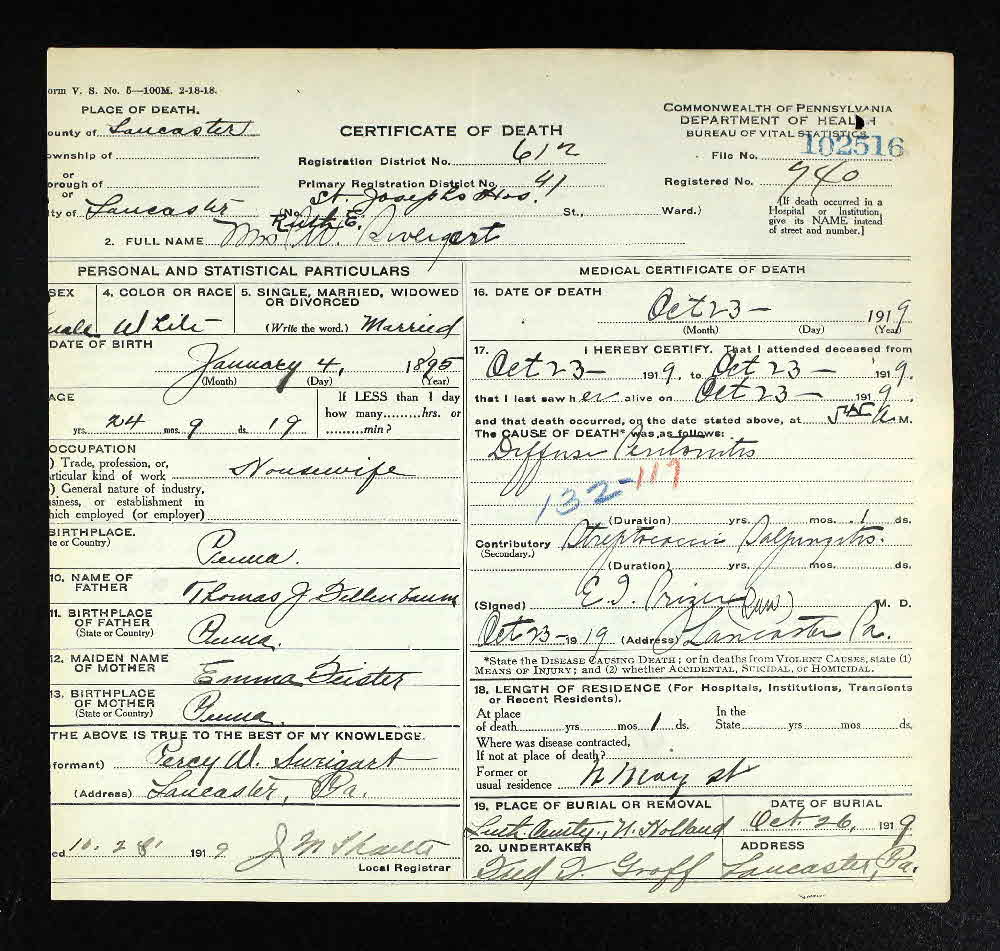 orm V. S. No. 5—100M. 2-18-18.
PLACE OF DEATH.
ounty of Lancaster
ownship of
or
orough of
or
ity of Lancaster
CERTIFICATE OF DEATH
Registration District No. 612
Primary Registration District No. 41
(No. St. Josephs Hos. St., Ward.)
COMMONWEALTH OF PENNSYLVANIA
DEPARTMENT OF HEALTH
BUREAU OF VITAL STATISTICS
File No. 102516
Registered No. 940
[If death occurred in a
Hospital or Institution,
give its NAME instead
of street and number.]
Ruth E.
2. FULL NAME Mrs P. W. Sweigert
PERSONAL AND STATISTICAL PARTICULARS
SEX
male
4. COLOR OR RACE
White
5. SINGLE, MARRIED, WIDOWED
OR DIVORCED
(Write the word.) Married
DATE OF BIRTH
January 4, 1895
(Month) (Day) (Year)
AGE
24 yrs. 9 mos. 19 ds.
If LESS than 1 day
how many.........hrs. or
.........min?
OCCUPATION
) Trade, profession, or,
rticular kind of work Housewife
) General nature of industry,
siness, or establishment in
hich employed (or employer)
BIRTHPLACE.
te or Country)
Penna.
10. NAME OF
FATHER
Thomas J Fellenbaum
11. BIRTHPLACE
OF FATHER
(State or Country)
Penna.
12. MAIDEN NAME
OF MOTHER
Emma Feister
13. BIRTHPLACE
OF MOTHER
(State or Country)
Penna.
THE ABOVE IS TRUE TO THE BEST OF MY KNOWLEDGE.
formant) Percy W. Swigart
(Address) Lancaster, Pa.
ed 10. 28 1919 J M Shartle
Local Registrar
MEDICAL CERTIFICATE OF DEATH
16. DATE OF DEATH
Oct 23 — 1919
(Month) (Day) (Year)
17. I HEREBY CERTIFY. That I attended deceased from
Oct 23 — 1919. to Oct 23 — 1919.
that I last saw her alive on Oct 23 — 1919.
and that death occurred, on the date stated above, at 545 A. M.
The CAUSE OF DEATH* was as follows:
Diffuse Peritonitis
132-117
(Duration) yrs. mos. 1 ds.
Contributory Streptococcic Salpingitis.
(Secondary.)
(Duration) yrs. mos. ds.
(Signed) E. J. Prizer M. D.
Oct 23-1919 (Address) Lancaster Pa.
*State the DISEASE CAUSING DEATH; or in deaths from VIOLENT CAUSES, state (1)
MEANS OF INJURY; and (2) whether ACCIDENTAL, SUICIDAL, OR HOMICIDAL.
18. LENGTH OF RESIDENCE (For Hospitals, Institutions, Transients
or Recent Residents).
At place
of death yrs mos 1 ds.
In the
State yrs mos ds.
Where was disease contracted,
If not at place of death?
Former or
usual residence N Mary st
19. PLACE OF BURIAL OR REMOVAL
Luth Cemty., N. Holland
DATE OF BURIAL
Oct. 26, 1919
20. UNDERTAKER
Fred F Groff
ADDRESS
Lancaster, Pa.